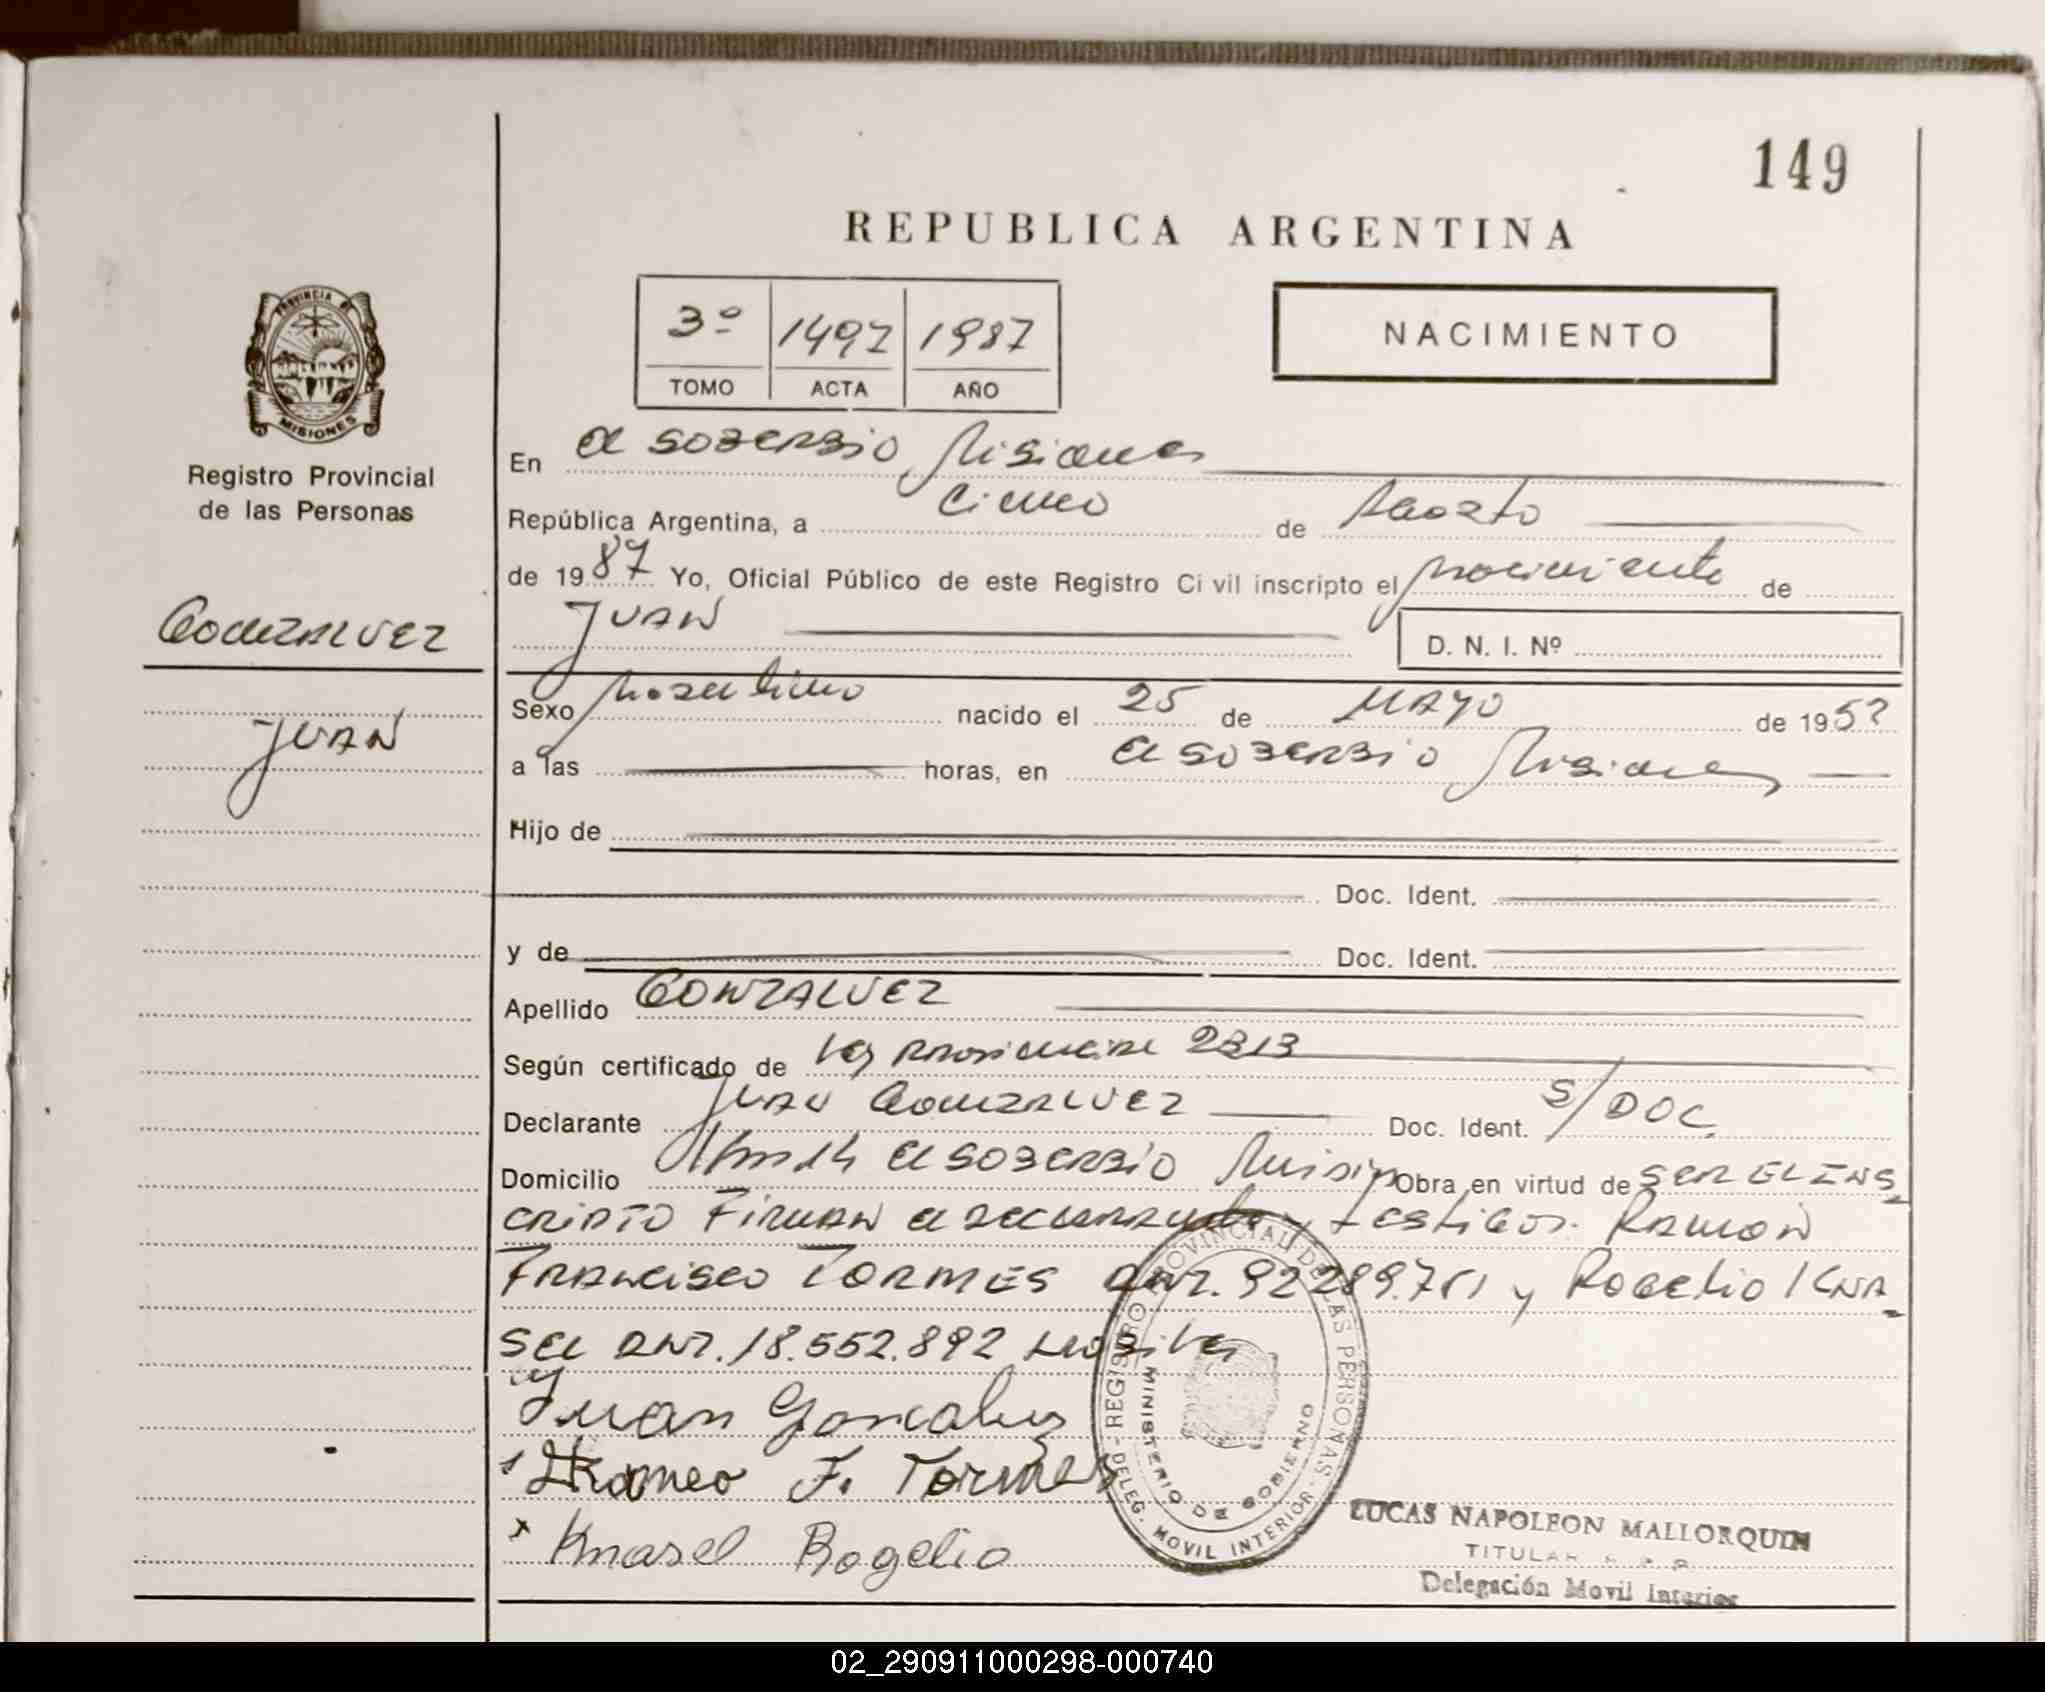 149
REPUBLICA ARGENTINA
3º 1497 1987
TOMO ACTA AÑO
NACIMIENTO
PROVINCIA DE
MISIONES
Registro Provincial
de las Personas
Gonzalvez
Juan
En El Soberbio, Misiones
República Argentina, a Cinco de Agosto
de 1987 Yo, Oficial Público de este Registro Civil inscripto el nacimiento de
Juan D. N. I. Nº
Sexo Masculino nacido el 25 de Mayo de 195
a las horas, en El Soberbio Misiones
Hijo de
Doc. Ident.
y de Doc. Ident.
Apellido Gonzalvez
Según certificado de Ley Provincial 2313
Declarante Juan Gonzalvez Doc. Ident. S/DOC.
Domicilio El Soberbio Obra en virtud de ser el ins
cripto Firman el declarante y testigos. Ramon
Francisco Tormes y Rogelio Kna
sel DNI. 18.552.892
Juan Goncalvez
F. Tormes
x Knasel Rogelio
REGISTRO PROVINCIAL DE LAS PERSONAS
MINISTERIO DE GOBIERNO
DELEG. MOVIL INTERIOR
LUCAS NAPOLEON MALLORQUIN
TITULAR
Delegación Movil Interior
02_290911000298-000740